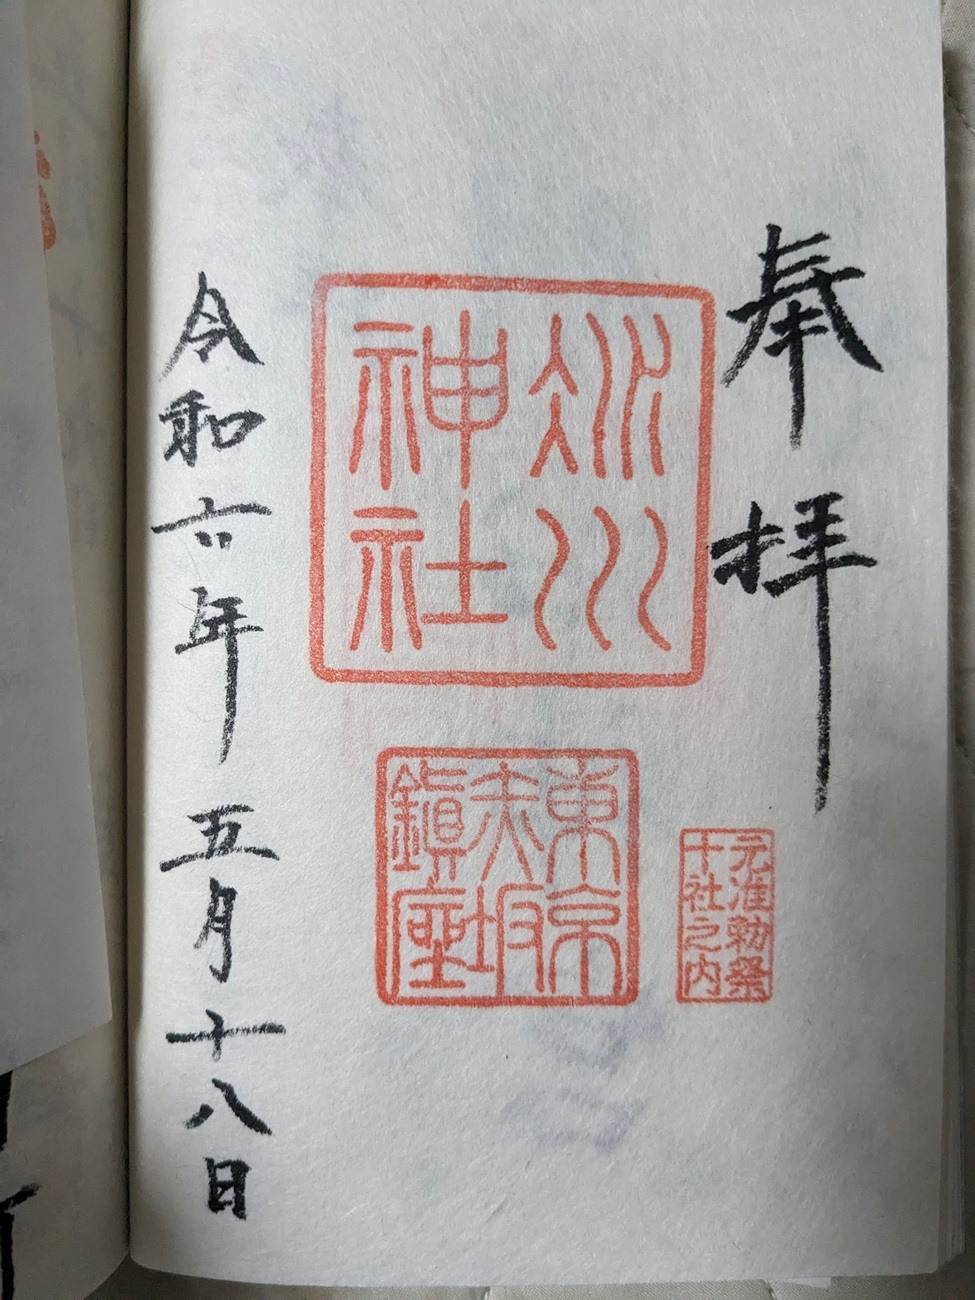 奉拝
氷川
神社
元准勅祭
十社之内
東京
赤坂
鎮座
令和六年 五月十八日